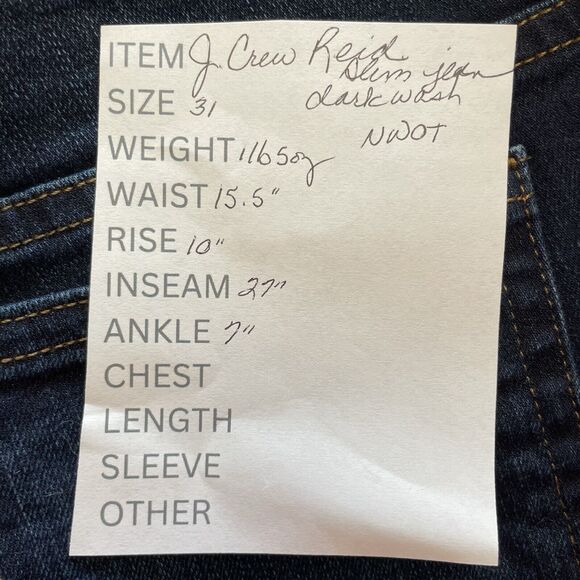 ITEM J. Crew Reid
slim jean
SIZE 31 dark wash
WEIGHT 1lb 5oz NWOT
WAIST 15.5"
RISE 10"
INSEAM 27"
ANKLE 7"
CHEST
LENGTH
SLEEVE
OTHER